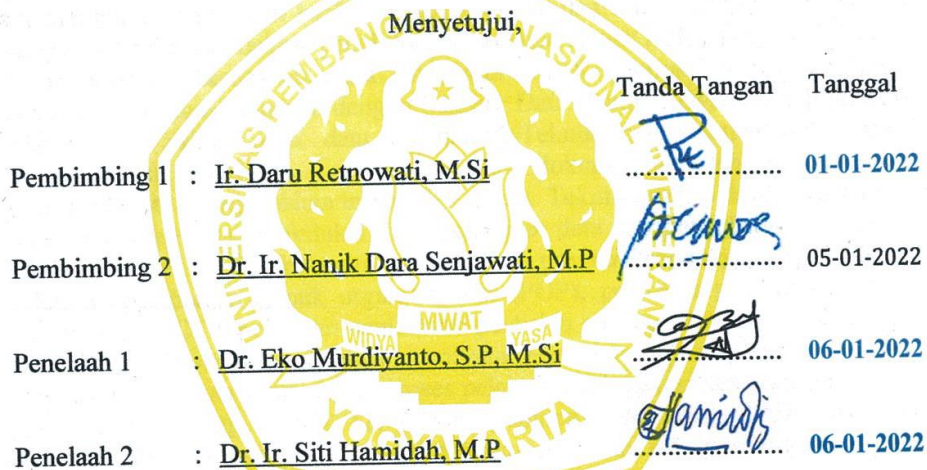 Menyetujui,
Tanda Tangan Tanggal
Pembimbing 1 : Ir. Daru Retnowati, M.Si ..................... 01-01-2022
Pembimbing 2 : Dr. Ir. Nanik Dara Senjawati, M.P ..................... 05-01-2022
Penelaah 1 : Dr. Eko Murdiyanto, S.P, M.Si ..................... 06-01-2022
Penelaah 2 : Dr. Ir. Siti Hamidah, M.P ..................... 06-01-2022
UNIVERSITAS PEMBANGUNAN NASIONAL "VETERAN"
WIDYA MWAT YASA
YOGYAKARTA